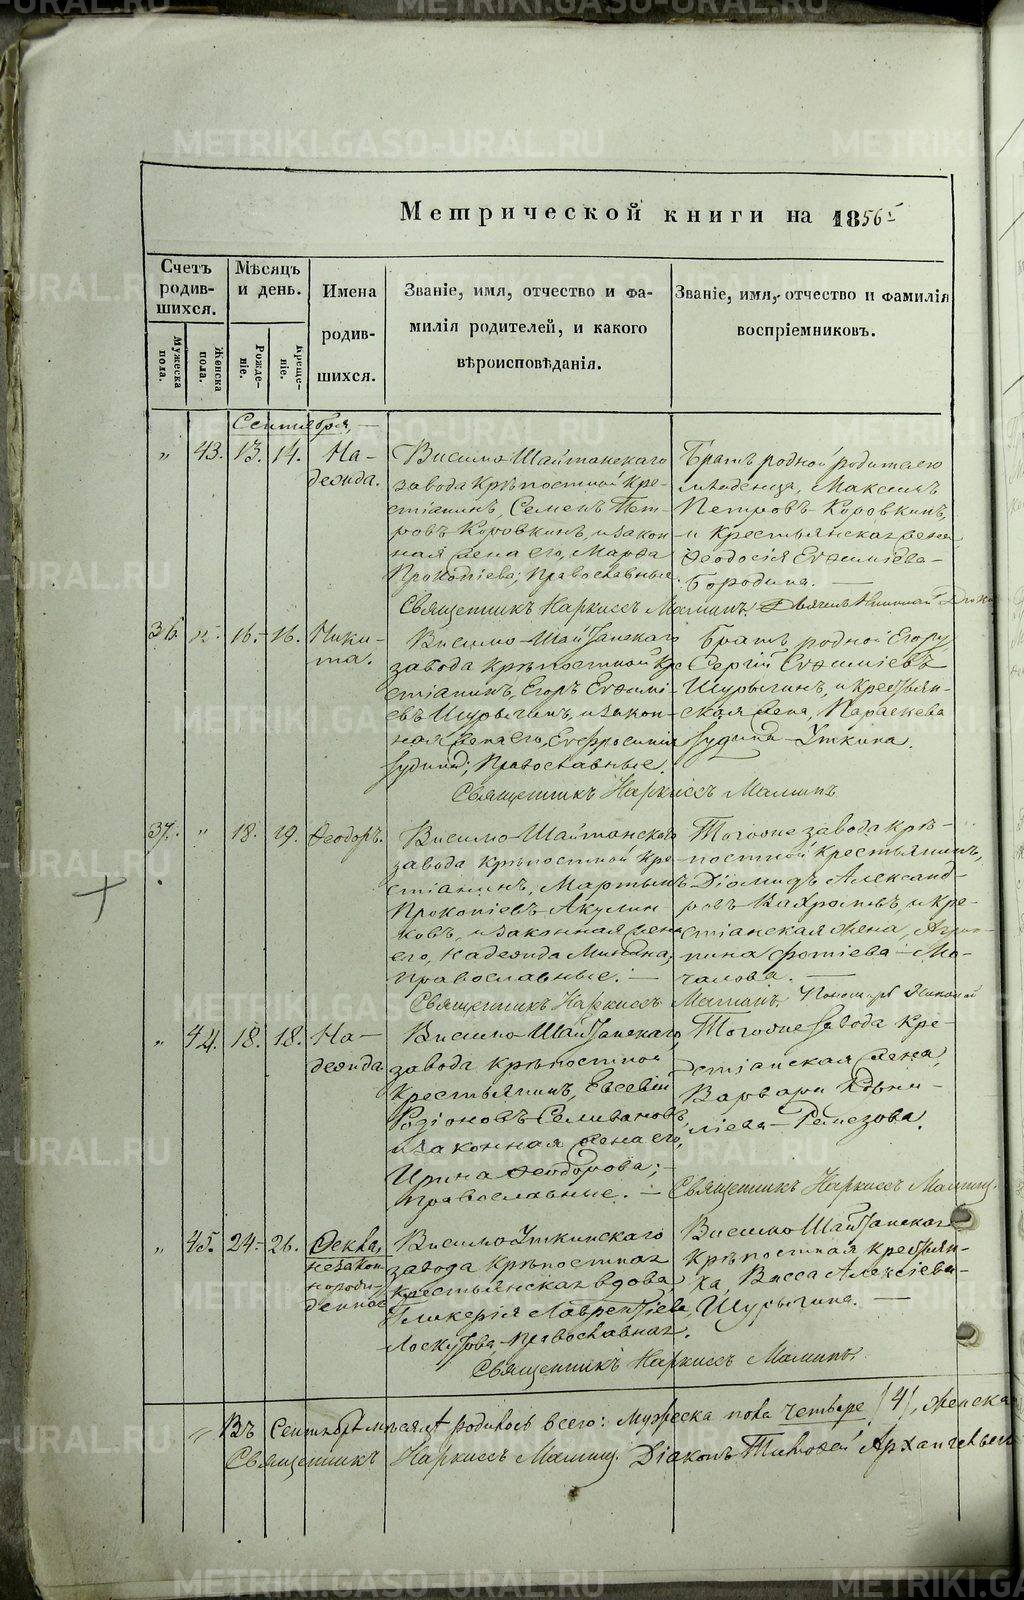 METRIKI.GASO-URAL.RU
Метрической книги на 1856
Счетъ родив-шихся.
Мужеска пола.
Женска пола.
Мѣсяцъ и день.
Рожде-ніе.
Креще-ніе.
Имена родив-шихся.
Званіе, имя, отчество и фа-
милія родителей, и какого
вѣроисповѣданія.
Званіе, имя, отчество и фамилія
воспріемниковъ.
Сентября,
" 43. 13. 14. На-
дежда.
Висимо-Шайтанскаго
завода крѣпостной кре-
стіанинъ, Семенъ Пет-
ровъ Коровкинъ, и закон-
ная жена его, Марѳа
Прокопіева; Православные.
Братъ родной родителю
младенца, Максимъ
Петровъ Коровкинъ,
и крестьянская жена
Ѳеодосія Евѳиміева
Бородина.
Священникъ Наркиссъ Маминъ.
36. " 16. 16. Ники-
та.
Висимо-Шайтанскаго
завода крѣпостной кре-
стіанинъ, Егоръ Евѳимі-
евъ Шурыгинъ, и закон-
ная жена его, Евфросинія
Іудина; Православные.
Братъ родной Егору
Сергій Евѳиміевъ
Шурыгинъ, и крестьян-
ская жена, Параскева
Іудина Уткина.
Священникъ Наркиссъ Маминъ
37. " 18. 19. Ѳеодоръ.
Висимо-Шайтанскаго
завода крѣпостной кре-
стіанинъ, Мартынъ
Прокопіевъ Акулин-
ковъ, и законная жена
его, Надежда Минина;
Православные.
Тогоже завода крѣ-
постной крестьянинъ,
Діомидъ Александ-
ровъ и кре-
стіанская жена, Агрип-
пина Фотіева Мо-
чалова.
Священникъ Наркиссъ Маминъ. Пономарь Николай
" 44. 18. 18. На-
дежда
Висимо-Шайтанскаго
завода крѣпостной
крестьянинъ, Евсевій
Родіоновъ Селивановъ,
и законная жена его,
Ирина Ѳеодорова;
православные.
Тогоже завода кре-
стіанская жена,
Варвара
Ремезова.
Священникъ Наркиссъ Маминъ.
" 45. 24. 26. Ѳекла,
незакон-
норож-
денное
Висимо-Уткинскаго
завода крѣпостная
крестьянская вдова
Гликерія Лаврентіева
Лоскутова, Православная.
Висимо Шайтанскаго
крѣпостная крестьян-
ка, Васса Алексіева
Шурыгина.
Священникъ Наркиссъ Маминъ.
Въ Сентябрѣ мѣсяцѣ родилось всего: мужеска пола четыре /4/, женска
Священникъ Наркиссъ Маминъ. Діаконъ Тимоѳей Архангельскій